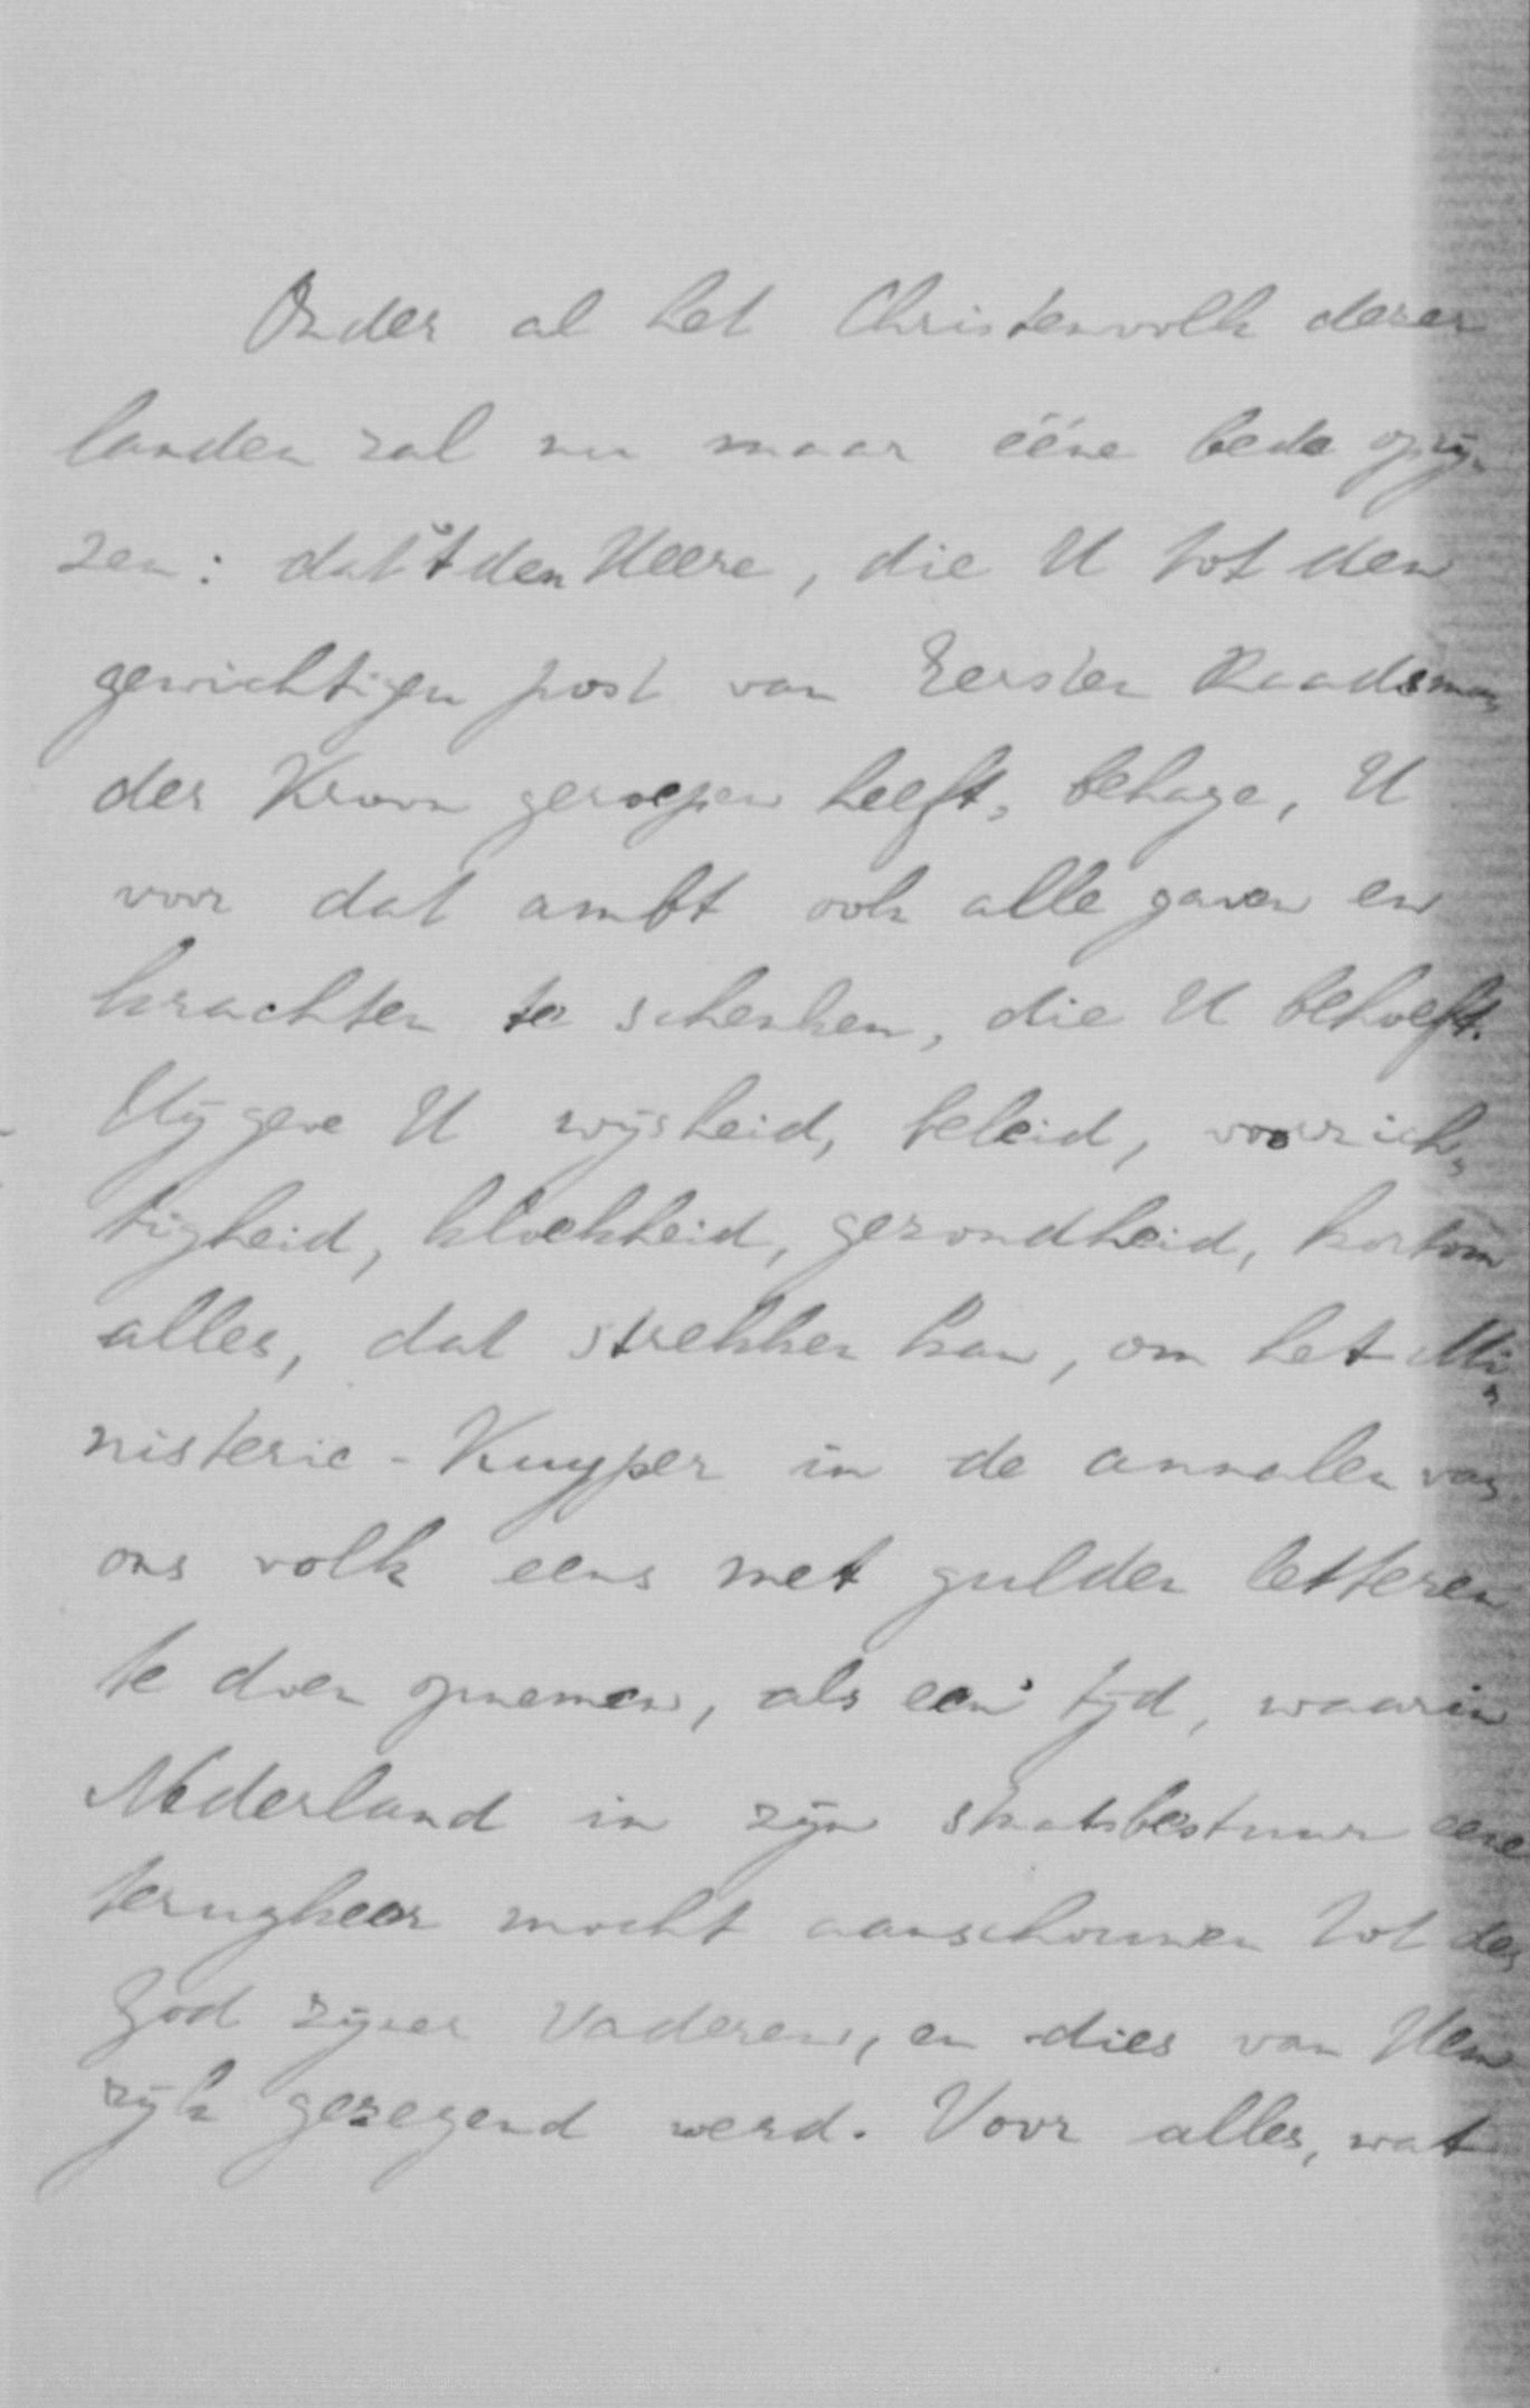 Onder al het Christenvolk dezer
landen zal nu maar ééne bede oprij-
zen: dat 't den Heere, die U tot den
gewichtigen post van Eersten Raadsman
der Kroon geroepen heeft, behage, U
voor dat ambt ook alle gaven en
krachten te schenken, die U behoeft.
Hij geve U wijsheid, beleid, voorzich-
tigheid, kloekheid, gezondheid, kortom
alles, dat strekken kan, om het Mi-
nisterie-Kuyper in de annalen van
ons volk eens met gulden letteren
te doen opnemen, als een tijd, waarin
Nederland in zijn staatsbestuur eene
terugkeer mocht aanschouwen tot den
God zijner Vaderen, en dies van Hem
rijk gezegend werd. Voor alles, wat